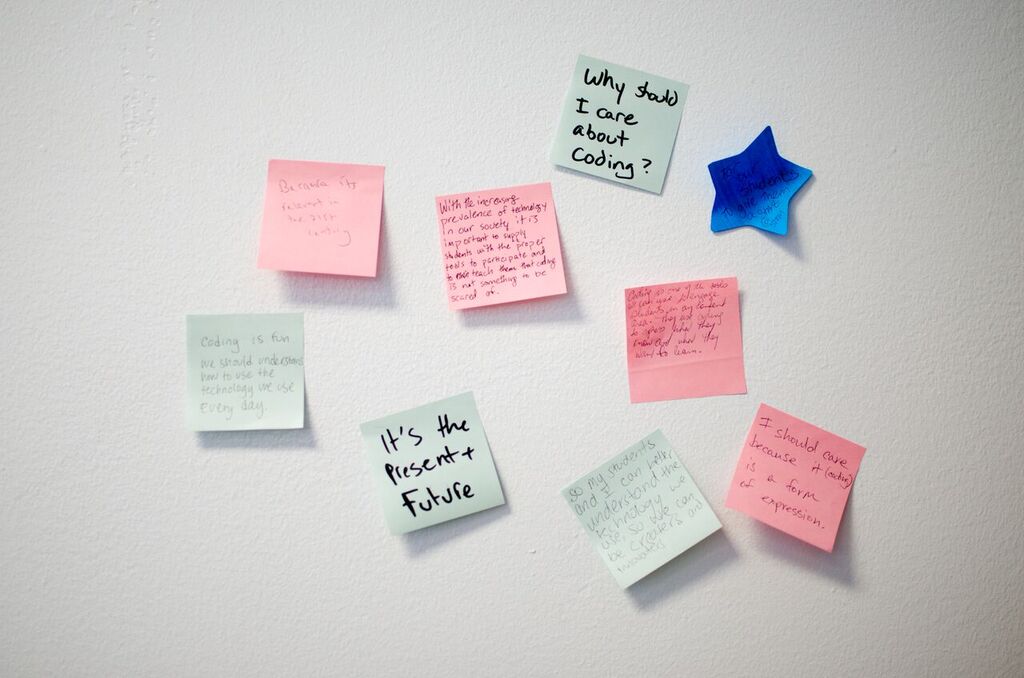 Why should
I care
about
coding?
Because its
relevant in
the 21st
century
With the increasing
prevalence of technology
in our society it is
important to supply
students with the proper
tools to participate and
to teach them that coding
is not something to be
scared of.
students
to give them
Coding is one of the tools
we can use to engage
students in any content
area. They use coding
to express what they
know and what they
want to learn.
Coding is fun
we should understand
how to use the
technology we use
Every day.
It's the
present +
Future
So my students
and I can better
understand the
technology we
use, so we can
be creators and
innovators
I should care
because it (coding)
is a form
of expression.